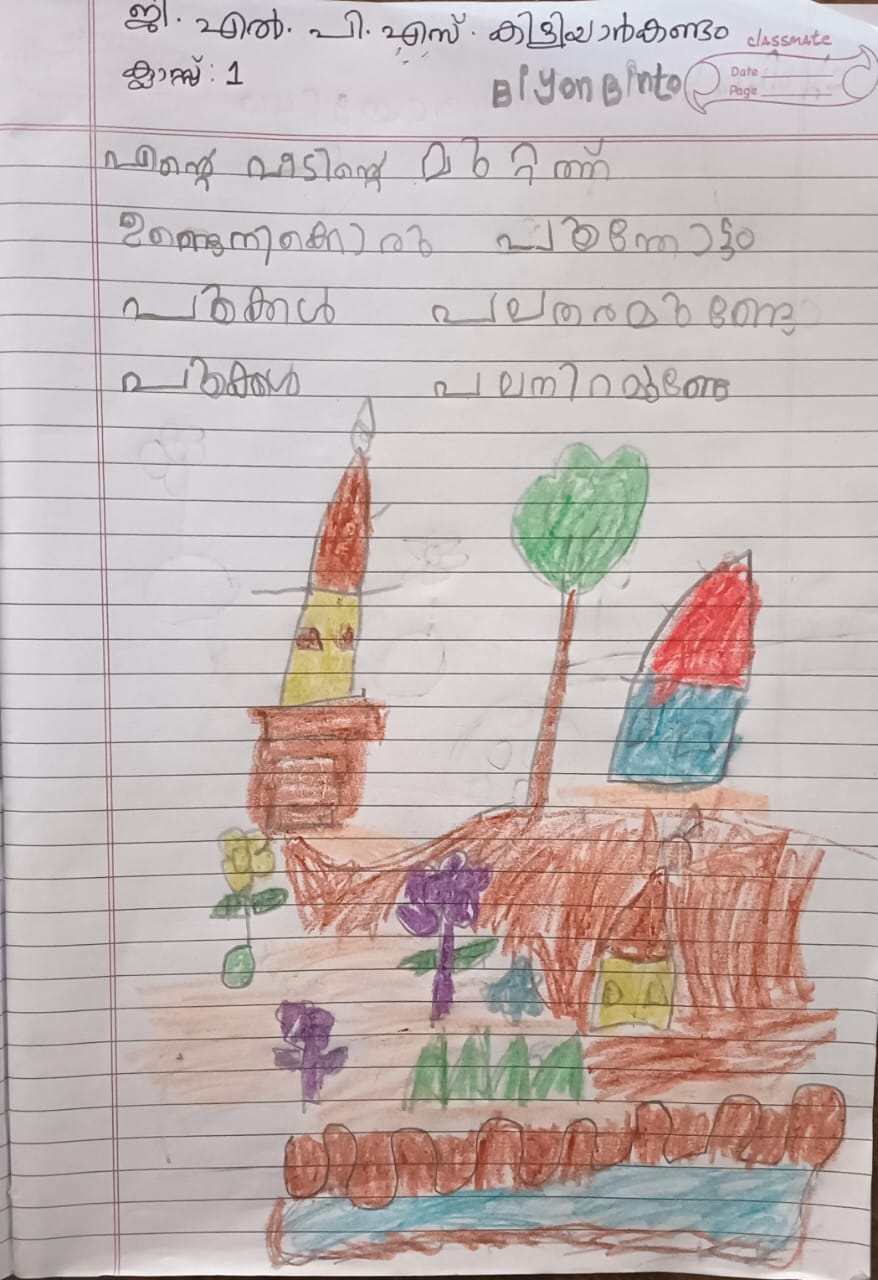 ജി. എൽ. പി. എസ്. കിളിയാർകണ്ടം
classmate
ക്ലാസ്സ് : 1
Biyon Binto
Date
Page
എന്റെ വീടിന്റെ മുറ്റത്ത്
ഉണ്ടെനിക്കൊരു പൂന്തോട്ടം
പൂക്കൾ പലതരമുണ്ടേ
പൂക്കൾ പലനിറമുണ്ടേ